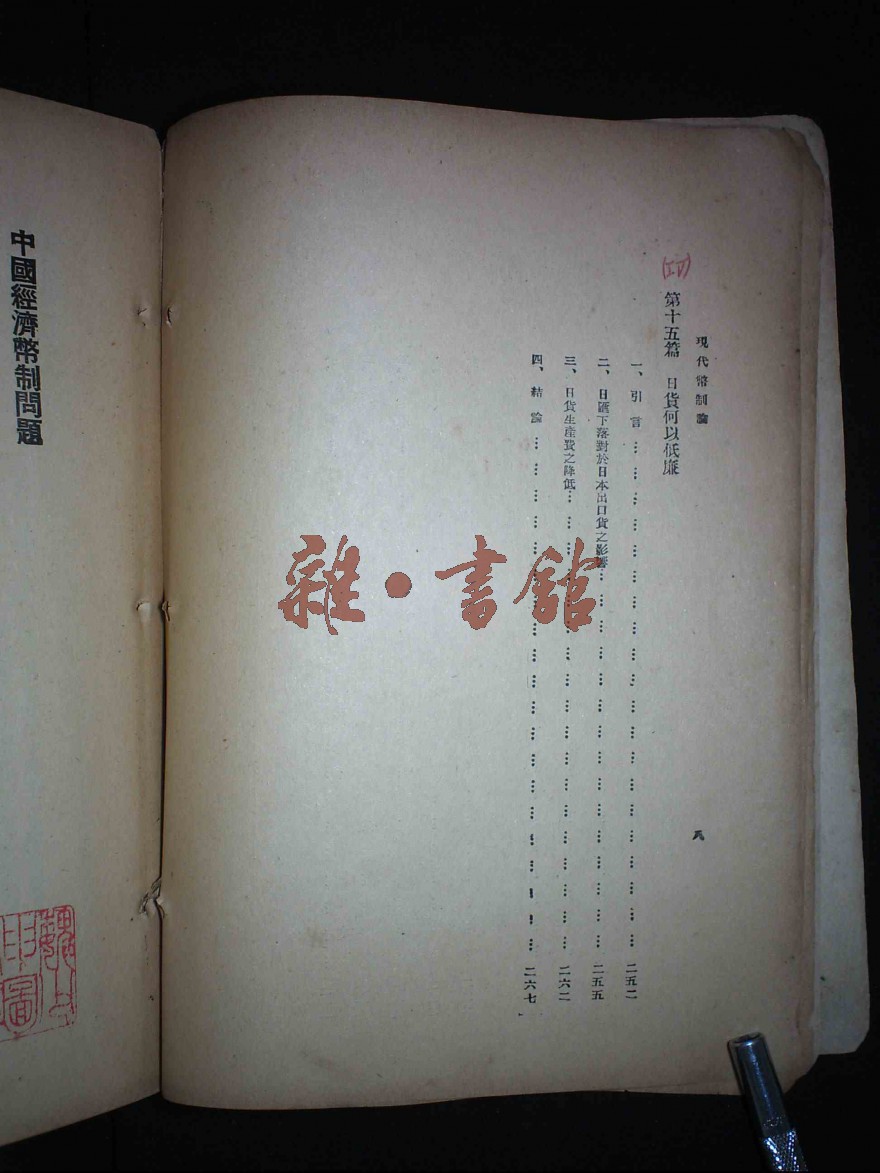 現代幣制論
八
第十五篇　日貨何以低廉
一、引言………二五二
二、日匯下落對於日本出口貨之影響………二五五
三、日貨生產費之降低………二六二
四、結論………二六七
中國經濟幣制問題
雜·書館